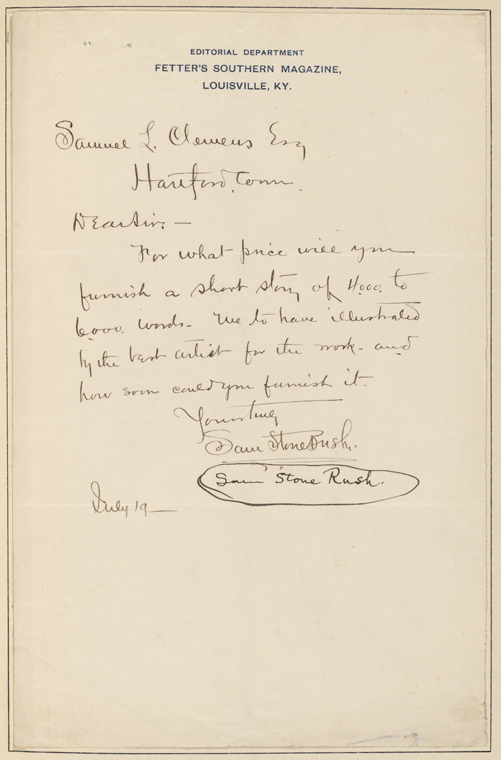 EDITORIAL DEPARTMENT
FETTER'S SOUTHERN MAGAZINE,
LOUISVILLE, KY.
Samuel L. Clemens Esq
Hartford, Conn.
Dear Sir: —
For what price will you
furnish a short story of 4,000, to
6,000, words - We to have illustrated
by the best artist for the work - and
how soon could you furnish it.
Yours truly
Sam Stone Rush.
Sam Stone Rush.
July 19 —